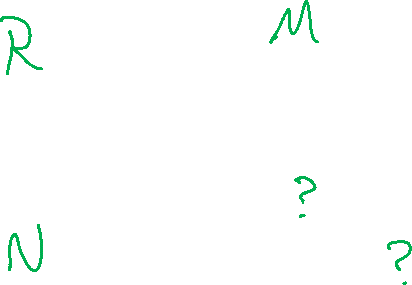 R M
?
N ?